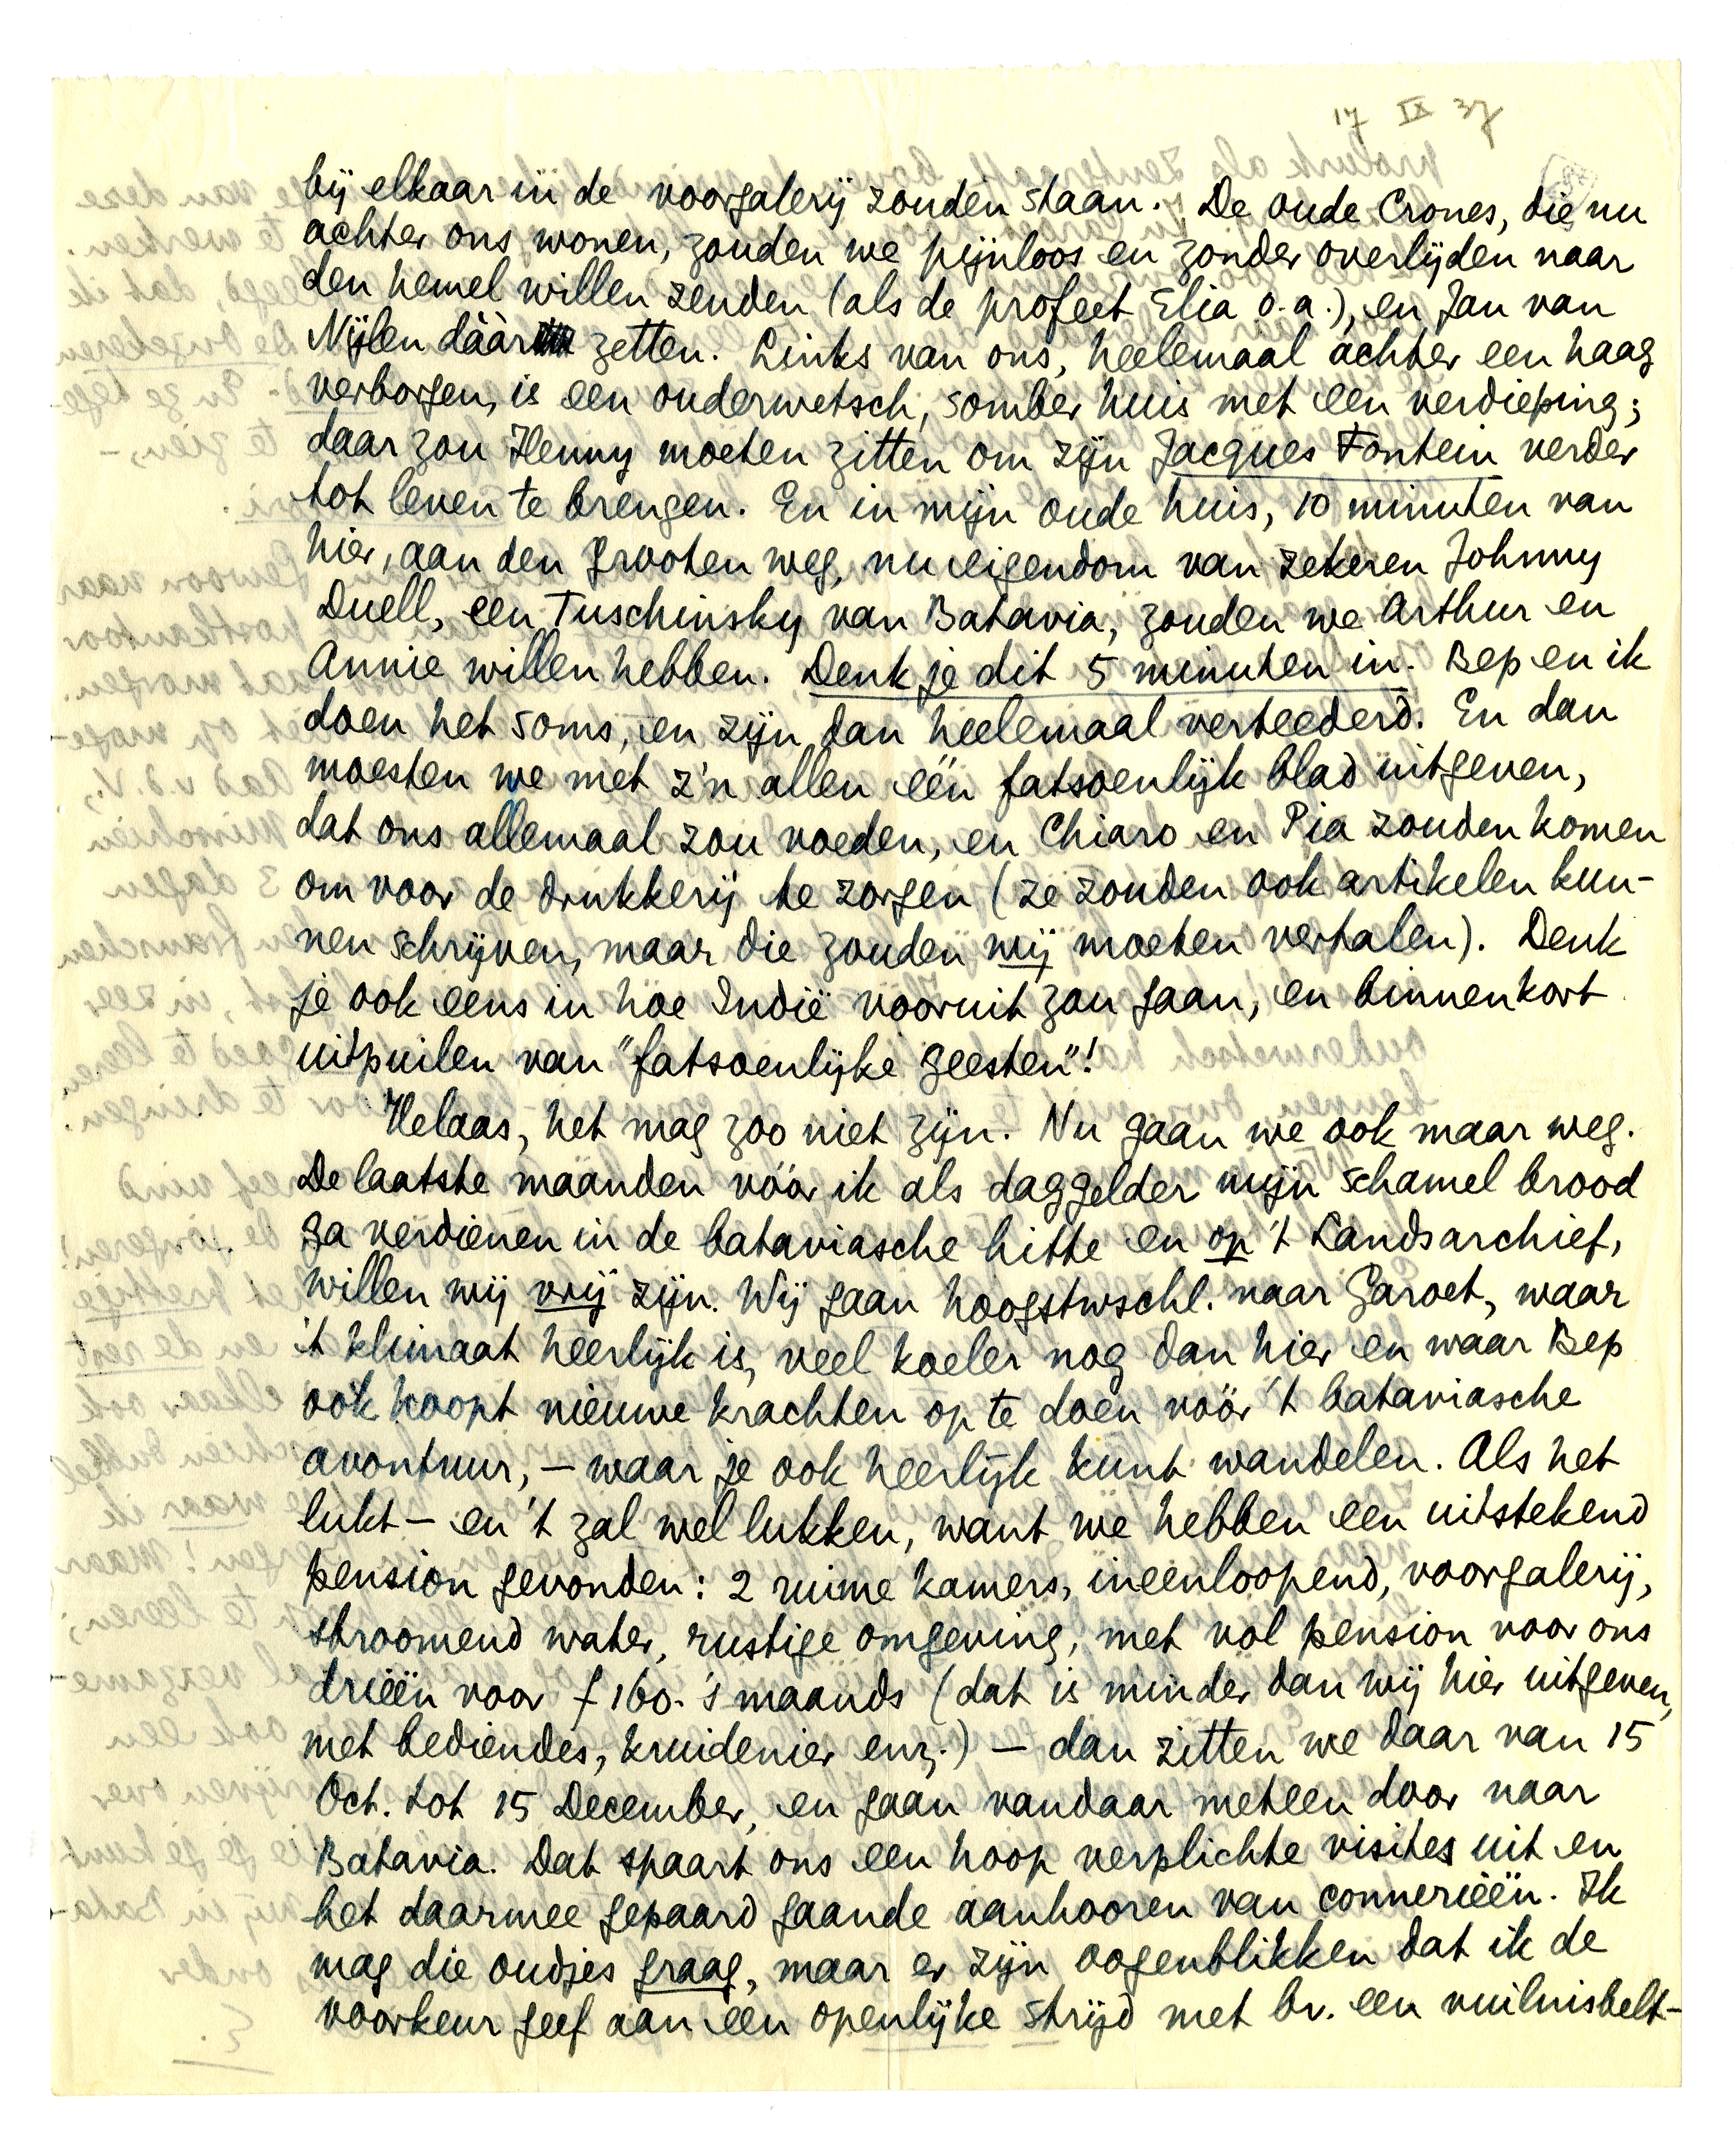 17 IX 37
bij elkaar in de voorgalerij zouden staan. De oude Crones, die nu
achter ons wonen, zouden we pijnloos en zonder overlijden naar
den hemel willen zenden (als de profeet Elia o.a.), en Jan van
Nijlen dáár zetten. Links van ons, heelemaal achter een haag
verborgen, is een ouderwetsch, somber huis met een verdieping;
daar zou Henny moeten zitten om zijn Jacques Fontein verder
tot leven te brengen. En in mijn oude huis, 10 minuten van
hier, aan den grooten weg, nu eigendom van zekeren Johnny
Duell, een Tuschinsky van Batavia, zouden we Arthur en
Annie willen hebben. Denk je dit 5 minuten in. Bep en ik
doen het soms, en zijn dan heelemaal verteederd. En dan
moesten we met z'n allen één fatsoenlijk blad uitgeven,
dat ons allemaal zou voeden, en Chiaro en Pia zouden komen
om voor de drukkerij te zorgen (ze zouden ook artikelen kun-
nen schrijven, maar die zouden wij moeten vertalen). Denk
je ook eens in hoe Indië vooruit zou gaan, en binnenkort
uitpuilen van "fatsoenlijke geesten"!
Helaas, het mag zoo niet zijn. Nu gaan we ook maar weg.
De laatste maanden vóór ik als daggelder mijn schamel brood
ga verdienen in de bataviasche hitte en op 't Landsarchief,
willen wij vrij zijn. Wij gaan hoogstwschl. naar Garoet, waar
't klimaat heerlijk is, veel koeler nog dan hier en waar Bep
ook hoopt nieuwe krachten op te doen vóór 't bataviasche
avontuur, — waar je ook heerlijk kunt wandelen. Als het
lukt — en 't zal wel lukken, want we hebben een uitstekend
pension gevonden: 2 ruime kamers, ineenloopend, voorgalerij,
stroomend water, rustige omgeving, met vol pension voor ons
drieën voor f 160.- 's maands (dat is minder dan wij hier uitgeven,
met bediendes, kruidenier enz.) — dan zitten we daar van 15
Oct. tot 15 December, en gaan vandaar meteen door naar
Batavia. Dat spaart ons een hoop verplichte visites uit en
het daarmee gepaard gaande aanhooren van connerieën. Ik
mag die oudjes graag, maar er zijn oogenblikken dat ik de
voorkeur geef aan een openlijke strijd met bv. een vuilnisbelt-